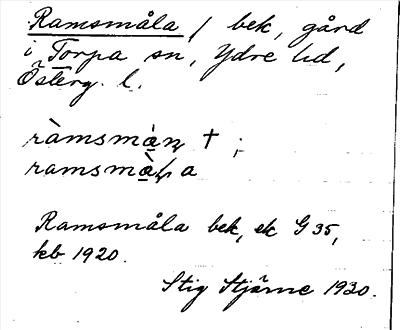 Ramsmåla / bek, gård
i Torpa sn, Ydre hd,
Österg. l.
ràmsmàn †;
ramsmàla
Ramsmåla bek, ek G 35,
kb 1920.
Stig Stjärne 1930.